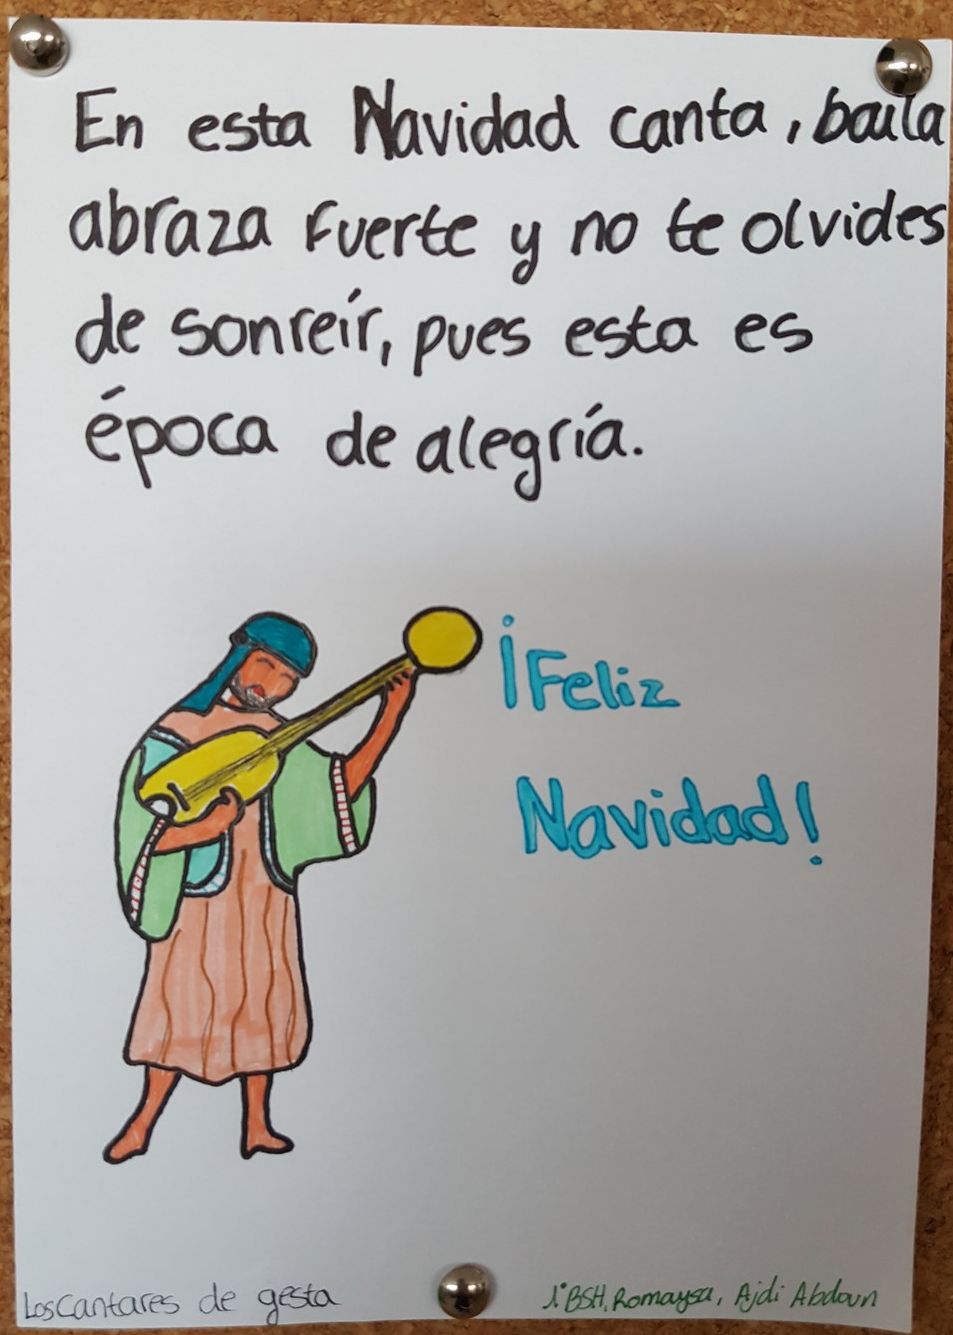 En esta Navidad canta, baila
abraza fuerte y no te olvides
de sonreír, pues esta es
época de alegría.
¡Feliz
Navidad!
Los Cantares de gesta
1ºBSH, Romaysa, Ajdi Abdoun